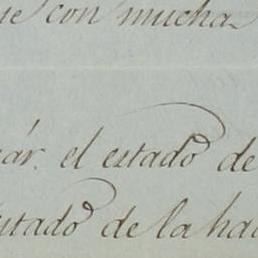 ue con mucha
ár. el estado de
stado de la ha